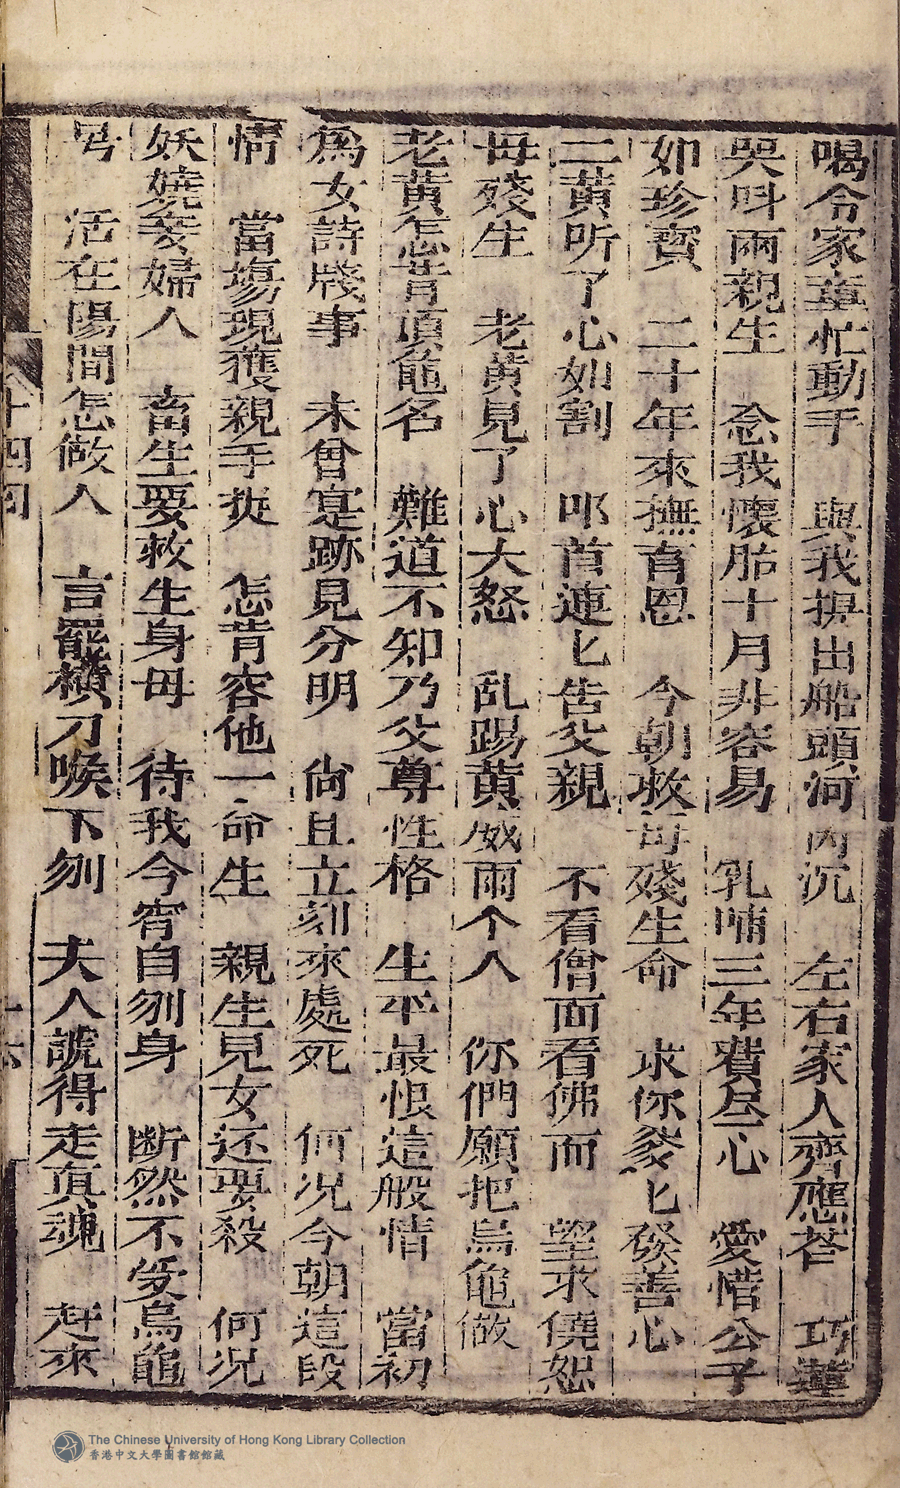 喝令家童忙動手　與我損出船頭河內沉　左右家人齊應荅　巧蓮
哭呌兩親生　念我懷胎十月非容易　乳哺三年費尽心　愛惜公子
如珍寳　二十年來撫育恩　今朝救母殘生命　求你爹匕發善心
二黄听了心如割　叩首連匕告父親　不看僧面看佛面　望求僥恕
母殘生　老黄見了心大怒　乱踢黄威兩个人　你們願把烏龜做
老黄怎肯頂龜名　難道不知乃父尊性格　生平最恨這般情　當初
為女詩牋事　未曾寔跡見分明　尙且立刻來處死　何况今朝這段
情　當塲現獲親手捉　怎肯容他一命生　親生見女还要殺　何况
妖嬈妾婦人　畜生要救生身毋　待我今宵自刎身　断然不受烏龜
号　活在陽間怎做人　言罷橫刀喉下刎　夫人諕得走真魂　赶來
十四囘
The Chinese University of Hong Kong Library Collection
香港中文大學圖書館館藏